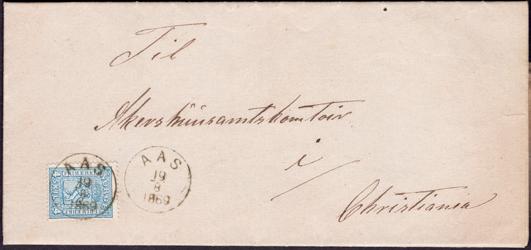 Til
Akershuusamtskontoir
i
Christiania
AAS
19
8
1869
AAS
19
8
1869